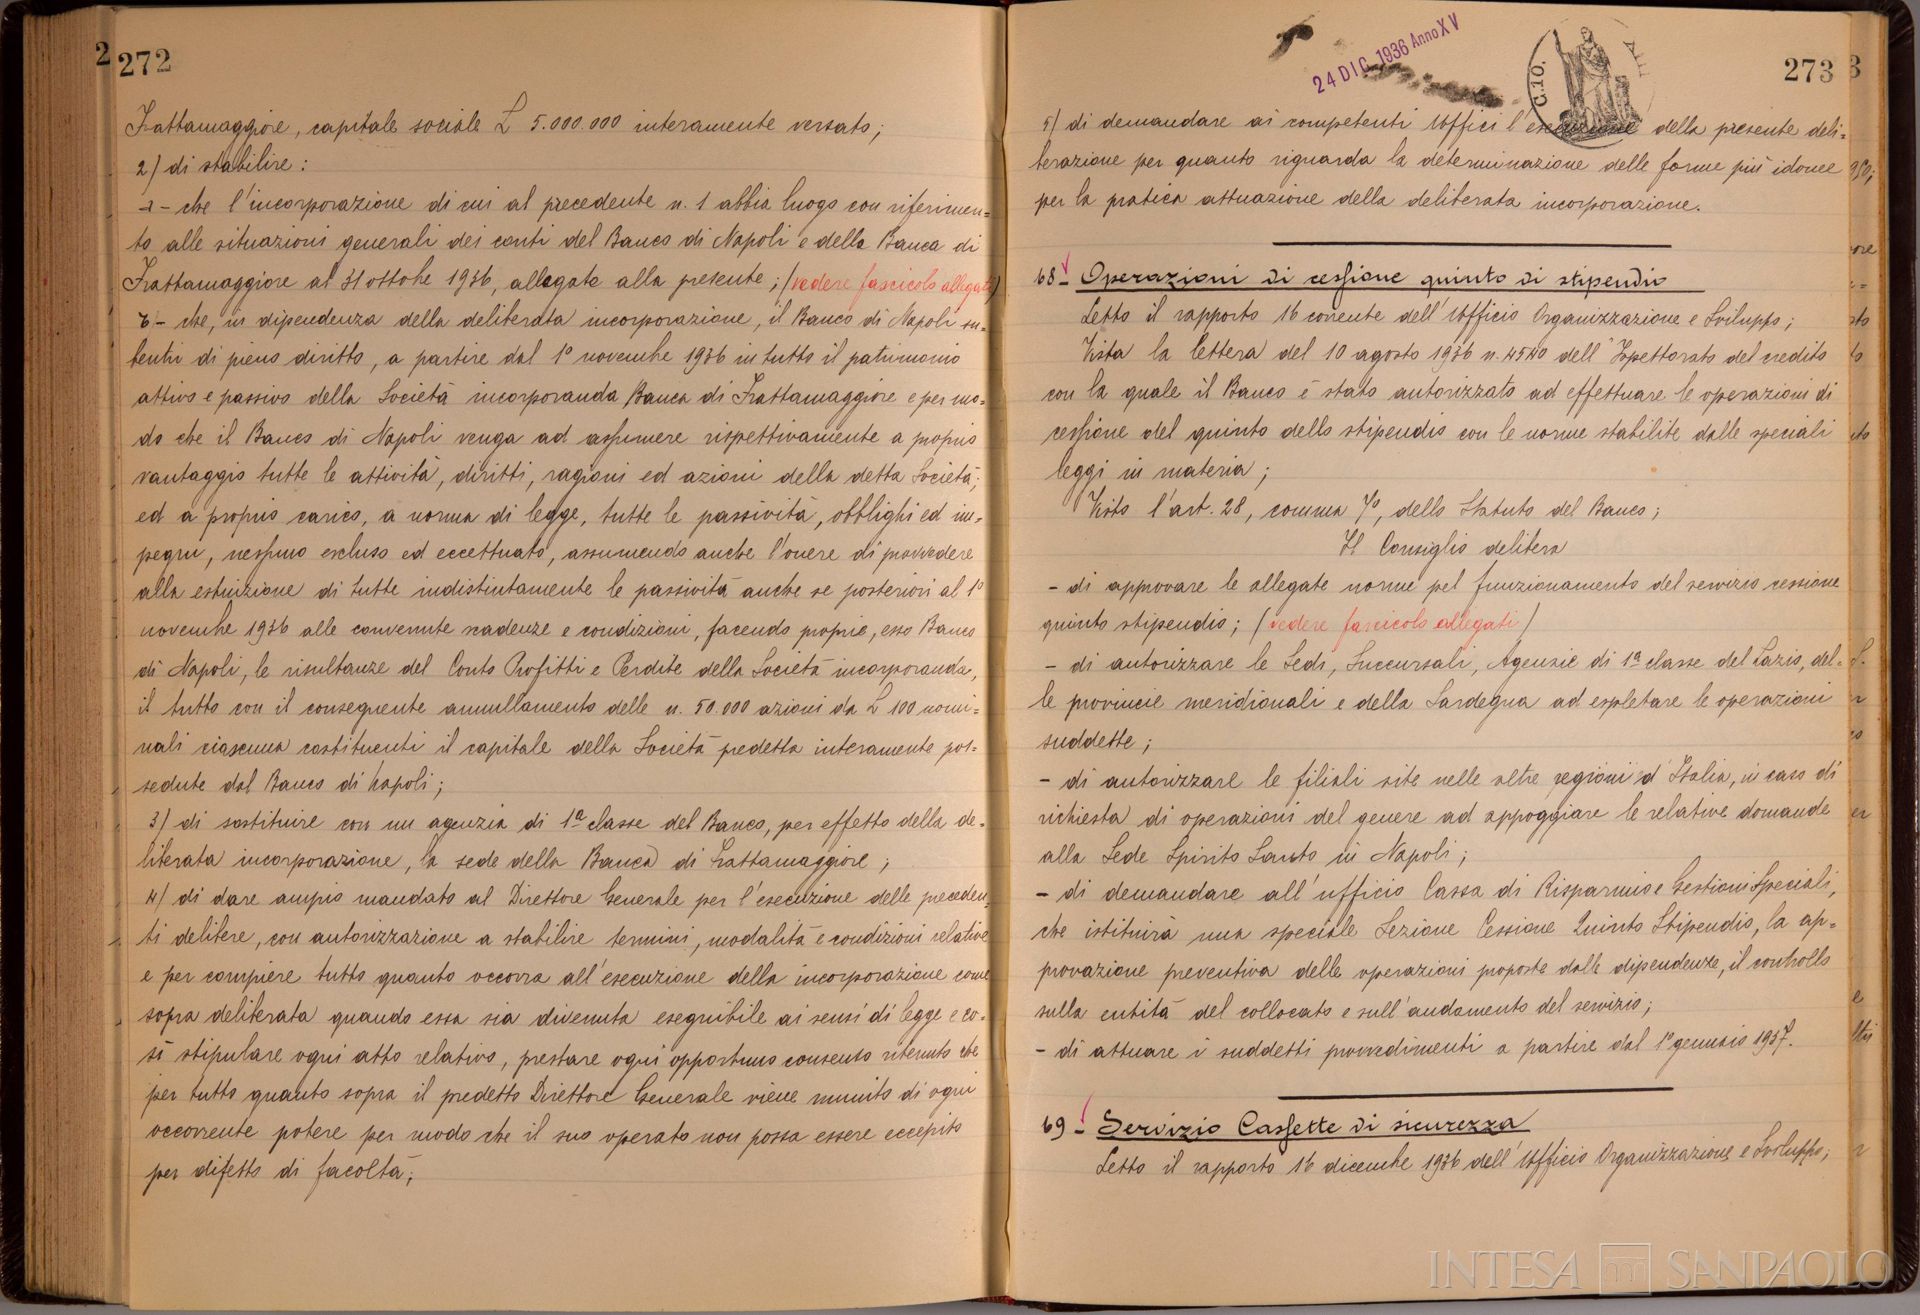 2
272
Frattamaggiore, capitale sociale £ 5.000.000 interamente versato;
2) di stabilire:
a - che l'incorporazione di cui al precedente n. 1 abbia luogo con riferimen=
to alle situazioni generali dei conti del Banco di Napoli e della Banca di
Frattamaggiore al 31 ottobre 1936, allegate alla presente; (vedere fascicolo allegati)
b - che, in dipendenza della deliberata incorporazione, il Banco di Napoli su=
bentri di pieno diritto, a partire dal 1° novembre 1936 in tutto il patrimonio
attivo e passivo della Società incorporanda Banca di Frattamaggiore e per mo=
do che il Banco di Napoli venga ad assumere rispettivamente a proprio
vantaggio tutte le attività, diritti, ragioni ed azioni della detta Società;
ed a proprio carico, a norma di legge, tutte le passività, obblighi ed im=
pegni, nessuno escluso ed eccettuato, assumendo anche l'onere di provvedere
alla estinzione di tutte indistintamente le passività anche se posteriori al 1°
novembre 1936 alle convenute scadenze e condizioni, facendo proprie, esso Banco
di Napoli, le risultanze del Conto Profitti e Perdite della Società incorporanda,
il tutto con il conseguente annullamento delle n. 50.000 azioni da £ 100 nomi=
nali ciascuna costituenti il capitale della Società predetta interamente pos=
sedute dal Banco di Napoli;
3) di sostituire con un agenzia di 1ª classe del Banco, per effetto della de=
liberata incorporazione, la sede della Banca di Frattamaggiore;
4) di dare ampio mandato al Direttore Generale per l'esecuzione delle preceden=
ti delibere, con autorizzazione a stabilire termini, modalità e condizioni relative
e per compiere tutto quanto occorra all'esecuzione della incorporazione come
sopra deliberata quando essa sia divenuta eseguibile ai sensi di legge e co=
sì stipulare ogni atto relativo, prestare ogni opportuno consenso ritenuto che
per tutto quanto sopra il predetto Direttore Generale viene munito di ogni
occorrente potere per modo che il suo operato non possa essere eccepito
per difetto di facoltà;
24 DIC. 1936 Anno XV
C.IO.
273
5) di demandare ai competenti Uffici l'esecuzione della presente deli=
berazione per quanto riguarda la determinazione delle forme più idonee
per la pratica attuazione della deliberata incorporazione.
68 - Operazioni di cessione quinto di stipendio
Letto il rapporto 16 corrente dell'Ufficio Organizzazione e Sviluppo;
Vista la lettera del 10 agosto 1936 n. 4540 dell'Ispettorato del credito
con la quale il Banco è stato autorizzato ad effettuare le operazioni di
cessione del quinto dello stipendio con le norme stabilite dalle speciali
leggi in materia;
Visto l'art. 28, comma 7°, dello Statuto del Banco;
Il Consiglio delibera
- di approvare le allegate norme pel funzionamento del servizio cessione
quinto stipendio; (vedere fascicolo allegati)
- di autorizzare le Sedi, Succursali, Agenzie di 1ª classe del Lazio, del=
le provincie meridionali e della Sardegna ad espletare le operazioni
suddette;
- di autorizzare le filiali site nelle altre regioni d'Italia, in caso di
richiesta di operazioni del genere ad appoggiare le relative domande
alla Sede Spirito Santo in Napoli;
- di demandare all'ufficio Cassa di Risparmio e Gestioni Speciali,
che istituirà una speciale Sezione Cessione Quinto Stipendio, la ap=
provazione preventiva delle operazioni proposte dalle dipendenze, il controllo
sulla entità del collocato e sull'andamento del servizio;
- di attuare i suddetti provvedimenti a partire dal 1° gennaio 1937.
69 - Servizio Cassette di sicurezza
Letto il rapporto 16 dicembre 1936 dell'Ufficio Organizzazione e Sviluppo;
INTESA SANPAOLO